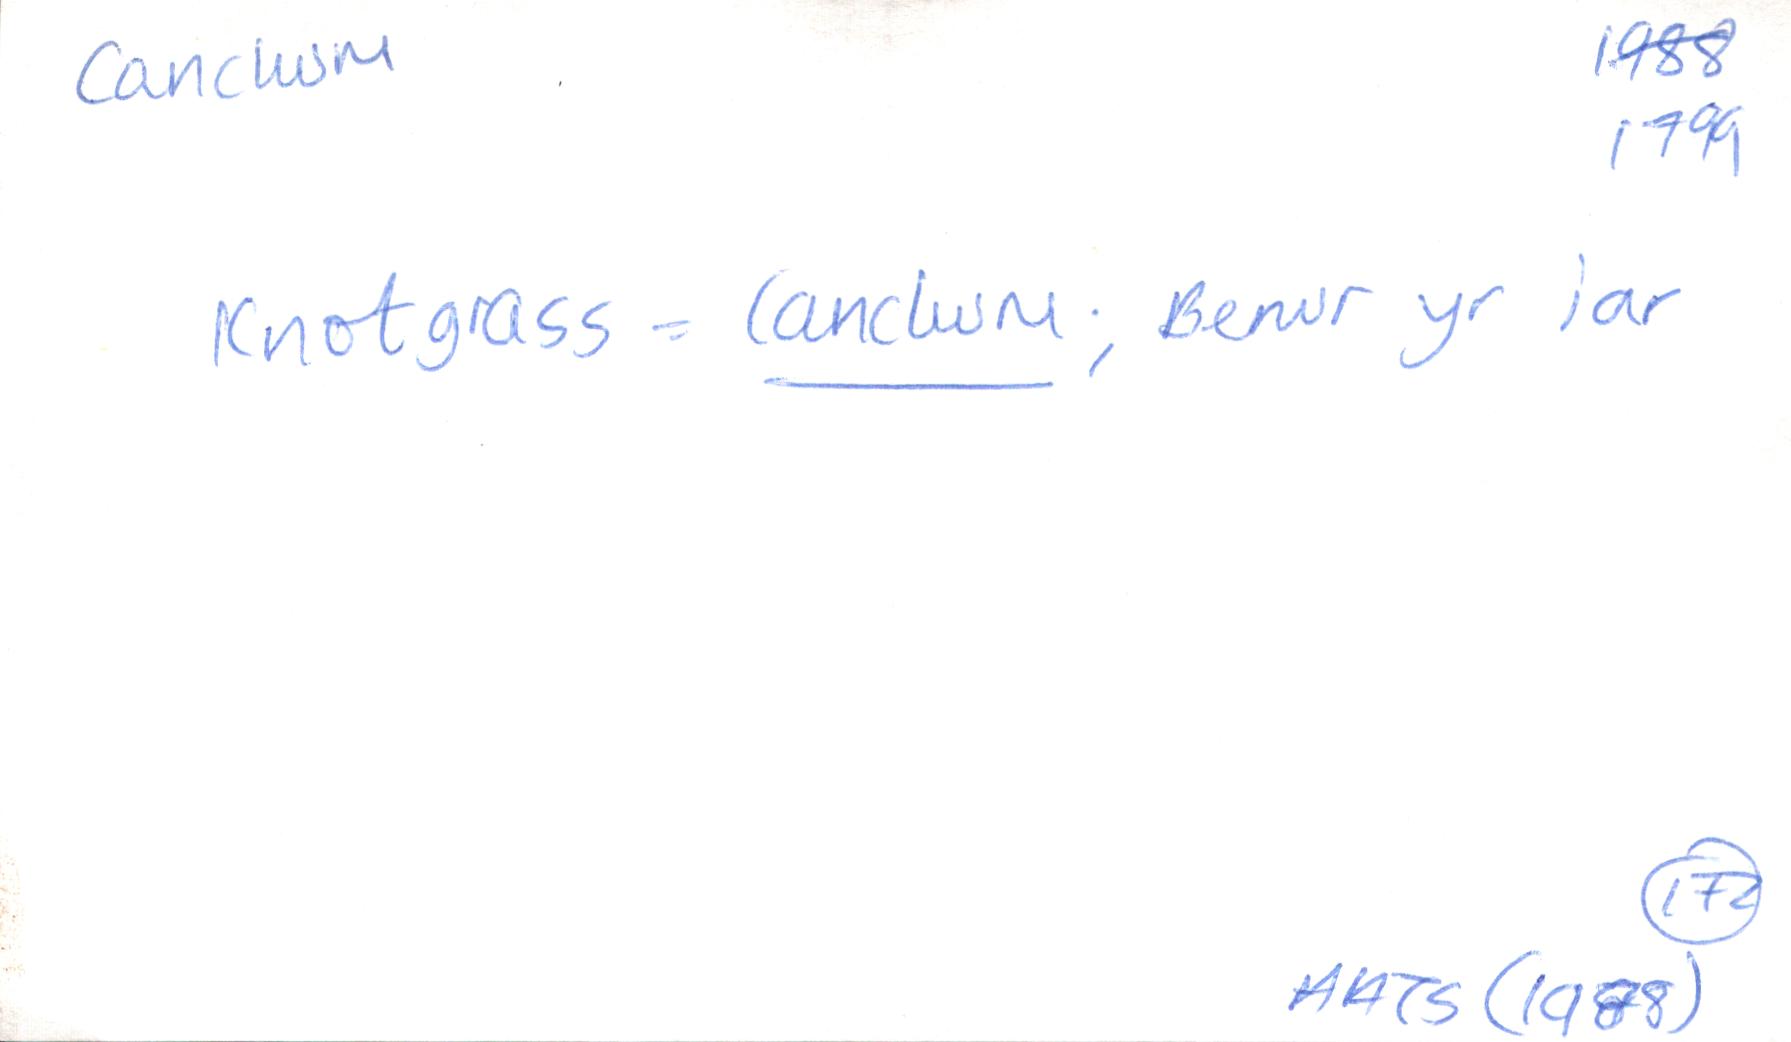 Canclwm
1988
1799
Knotgrass = Canclwm; Berwr yr iar
172
(1988)